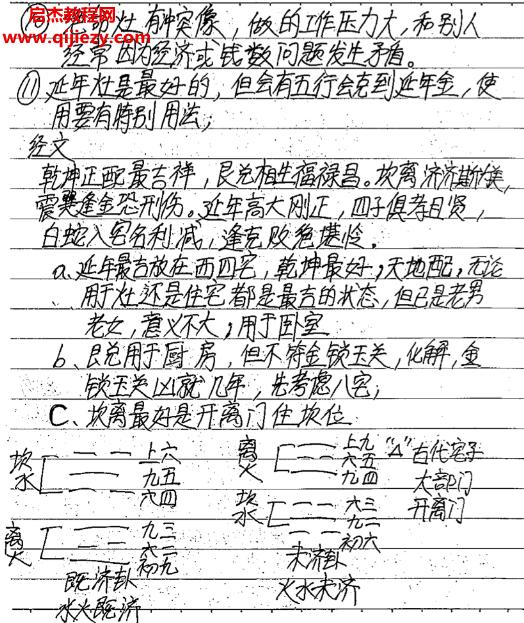 启杰易学网
www.qijiezy.com
灶有冲突像，做的工作压力大，和别人
经常因为经济或钱数问题发生矛盾。
⑪延年灶是最好的，但会有五行会克到延年金，使
用要有特别用法；
经文
乾坤正配最吉祥，艮兑相生福禄昌。坎离济济斯美，
震巽逢金恐刑伤。延年高大刚正，四子俱孝且贤，
白蛇入宅名利减，逢克败绝堪怜。
a.延年最吉放在西四宅，乾坤最好；天地配；无论
用于灶还是住宅都是最吉的状态，但已是老男
老女，意义不大；用于卧室
b、艮兑用于厨房，但不符金锁玉关，化解，金
锁玉关凶就几年，先考虑八宅；
C、坎离最好是开离门住坎位
坎水 上六 九五 六四
离火 九三 六二 初九
既济卦
水火既济
离火 上九 六五 九四
坎水 六三 九二 初六
未济卦
火水未济
“△”古代宅子
大部门
开离门